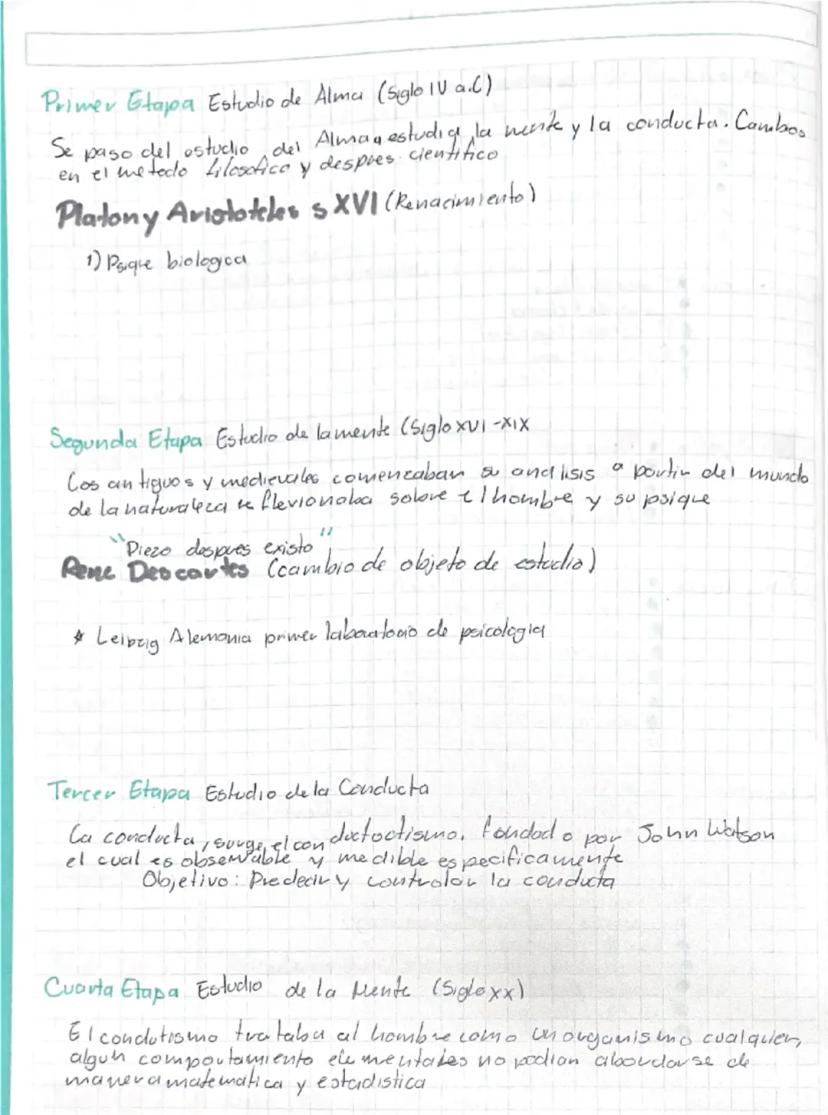 Primer Etapa Estudio de Alma (Siglo IV a.C)
Se paso del estudio del Alma a estudiar la mente y la conducta. Cambios
en el metodo filosofico y despues cientifico
Platon y Aristoteles s XVI (Renacimiento)
1) Psique biologica
Segunda Etapa Estudio de la mente (Siglo XVI -XIX
Los antiguos y medievales comenzaban su analisis a partir del mundo
de la naturaleza reflexionaba sobre el hombre y su psique
"Piezo despues existo"
Rene Descartes (cambio de objeto de estudio)
* Leipzig Alemania primer laboratorio de psicologia
Tercer Etapa Estudio de la Conducta
La conducta, surge el conductoctismo. fondado por John Watson
el cual es observable y medible especificamente
Objetivo: Predecir y controlar la conducta
Cuarta Etapa Estudio de la Mente (Siglo xx)
El condutismo trataba al hombre como un organismo cualquier,
algun comportamiento elementales no podian abordarse de
manera matematica y estadistica